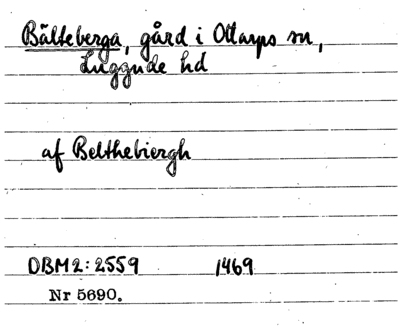 Bälteberga, gård i Ottarps sn,
Luggude hd
af Belthebiergh
DBM2:2559 1469
Nr 5690.